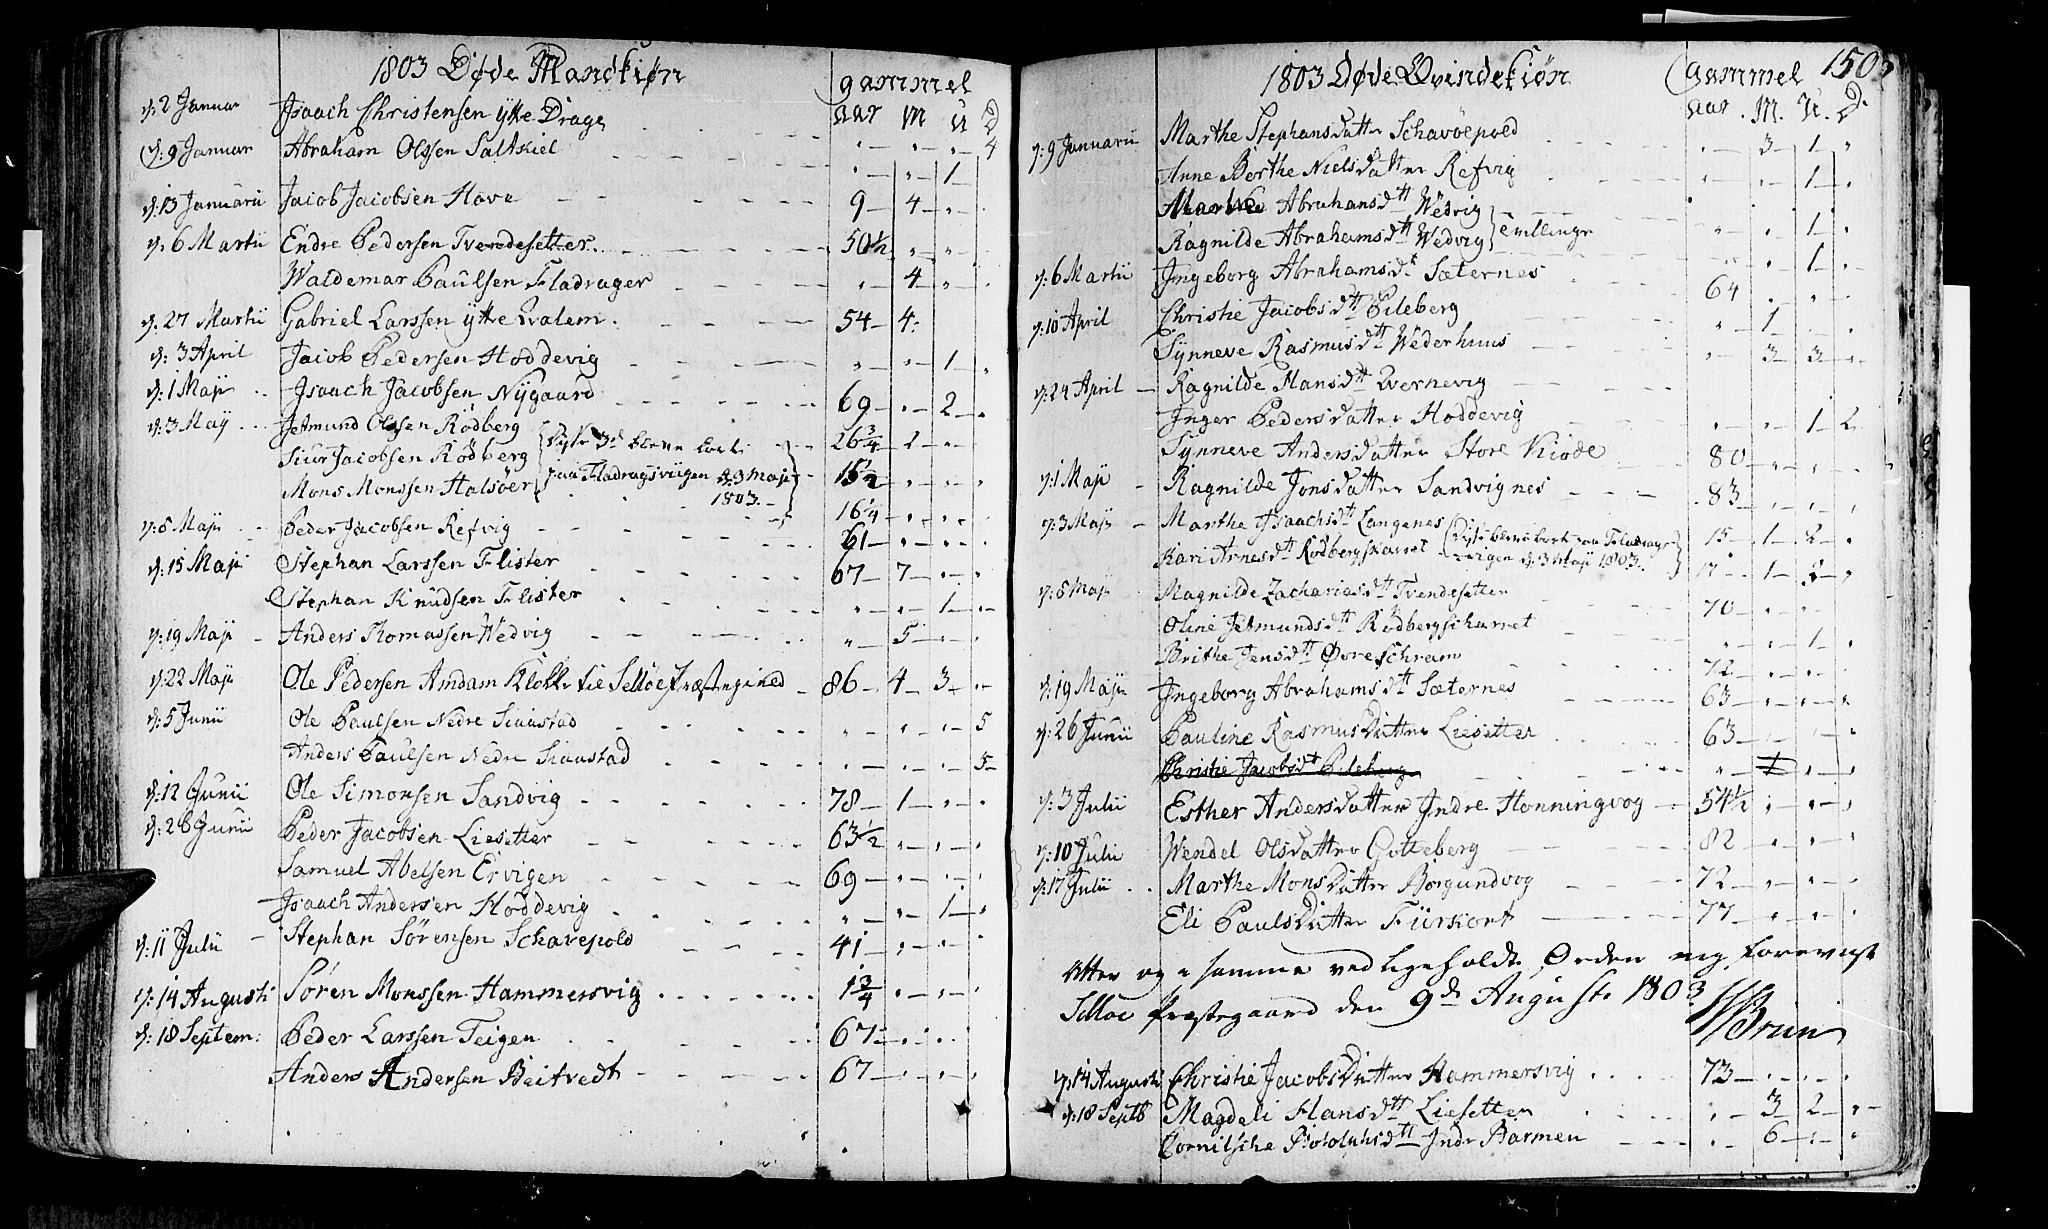 1803 Døde Mandkiøn
gammel
aar M U D
d: 2 Januar Isaach Christensen ytte Drage " " " 4
d: 9 Januar Abraham Olssen Saltkiel " " 1
d: 13 Januarii Jacob Jacobsen Hove 9 4 " "
d: 6 Martii Endre Pedersen Tvendesetter 50½ " " "
Waldemar Paulsen Fladrager " 4 " "
d: 27 Martii Gabriel Larssen ytte Qvalem 54 4
d: 3 April Jacob Pedersen Hoddevig " " 1 "
d: 1 Maji Isaach Jacobsen Nygaard 69 " 2 "
d: 3 May Jetmund Olssen Rødberg 26¾ 2 " "
Siur Jacobsen Rødberg disse 3de bleve borte 15½ " " "
Mons Monssen Halsöer paa Fladragsviigen d: 3 Maji 1803 16¼ " " "
d: 8 Maji Peder Jacobsen Refvig 61 " " "
d: 15 Maji Stephan Larssen Flister 67 7 " "
Stephan Knudsen Flister " " 1 "
d: 19 Maji Anders Thomassen Wedvig " 5 " "
d: 22 Maji Ole Pedersen Amdam Klokker til Selløe Præstegield 86 4 3 "
d: 5 Junii Ole Paulsen Nedre Siaastad " " " 5
Anders Paulsen Nedre Siaastad " " " 5
d: 12 Junii Ole Simonsen Sandvig 78 1 " "
d: 26 Junii Peder Jacobsen Liesetter 63½ " " "
Samuel Abelsen Ervigen 69 " " "
Isaach Andersen Hoddevig " " 1 "
d: 11 Julii Stephan Sörensen Schavepold 41 " " "
d: 14 Augusti Sören Monssen Hammersvig 1¾ " " "
d: 18 Septem: Peder Larssen Teigen 67 " " "
Anders Andersen Beitvedt 67 " " "
1803 Døde Qvindekiøn
gammel 150
aar M. U. D.
d: 9 Januarii Marthe Stephansdatter Schavøepold " 3 1 "
Anne Berthe Nielsdatter Refvig " " 1 "
Abrahamsdtt Wedvig
Ragnilde Abrahamsdtt Wedvig tvillinger " " 1 "
" " 1 "
d: 6 Martii Ingeborg Abrahamsdt Sæternes 64 " " "
d: 10 April Christie Jacobsdtt Pileberg " 1 " "
Synneve Rasmusdtt Wederhuus " 3 3 "
d: 24 April Ragnilde Hansdtt Qvernevig
Inger Pedersdatter Hoddevig " " 1 2
Synneve Andersdatter Store Kiøde 80 " " "
d: 1 Maji Ragnilde Jonsdatter Sandvignes 83 " " "
d: 3 Maji Marthe Isaachsdtt Langenes disse bleve borte paa Fladrags 15 1 2 "
Kari Arnesdtt Rødbergskarret viigen d: 3 Maji 1803 17 1 2 "
d: 8 Maji Magnilde Zachariasdtt Tvendesetter 70 " "
Oline Jetmundsdtt Rødbergscharret " " 1 "
Brithe Jensdtt Øvreschram 72 " " "
d: 19 Maji Ingeborg Abrahamsdtt Sæternes 63 " " "
d: 26 Junii Pauline Rasmusdatter Liesetter 63 " " "
Christie Jacobsdt Pileberg " 1 " "
d: 3 Julii Esther Andersdatter Indre Honningvog 54½ " " "
d: 10 Julii Wendel Olsdatter Gotteberg 82 " " "
d: 17 Julii Marthe Monsdatter Borgundvog 72 " " "
Eli Paulsdatter Fürkort 77 " " "
Efter og i samme vedligeholdt Orden mig foreviist
Selløe Præstegaard den 9de Auguste 1803
Brun
d: 14 Augusti Christie Jacobsdatter Hammersvig 73 " " "
d: 18 Septb Magdeli Hansdtt Liesetter " 3 2 "
Cornilsche Rotolphsdtt Indr Barmen " 6 " "